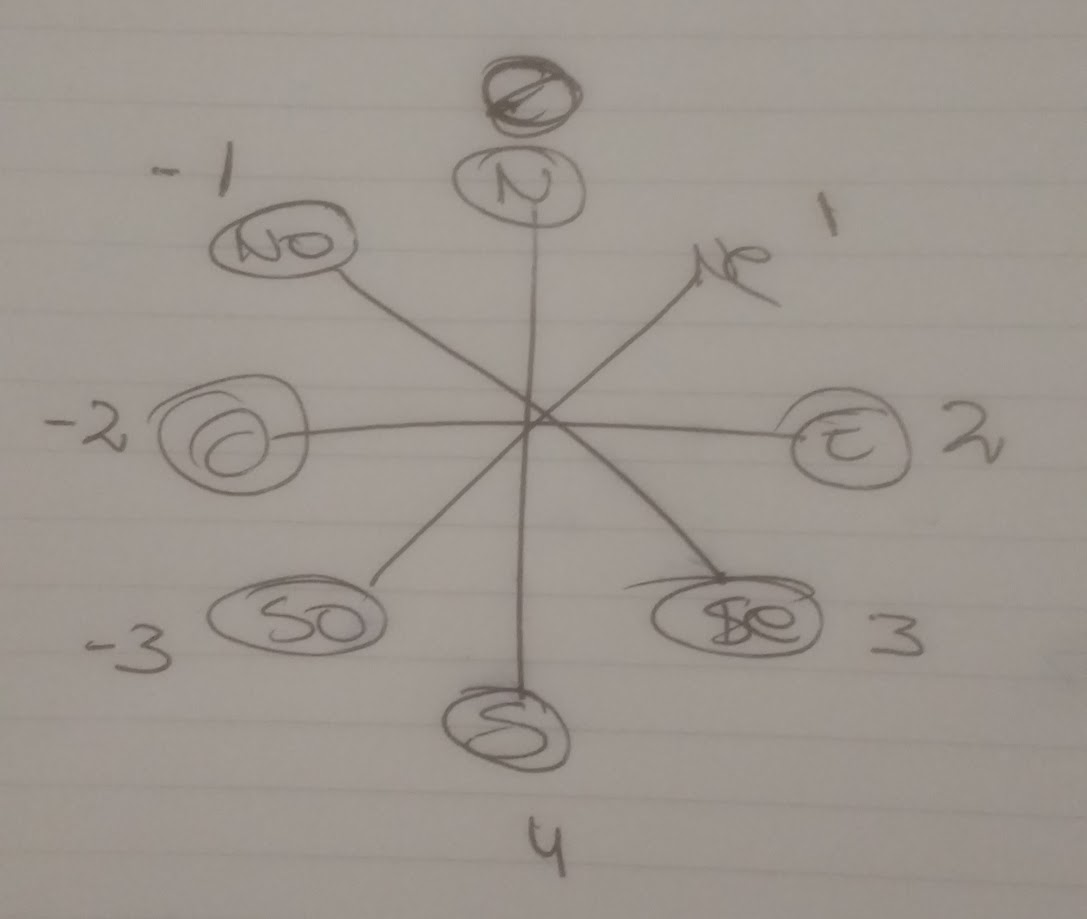 0
N
-1
NO
Ne
1
-2
O
E
2
SO
Se
-3
3
S
4